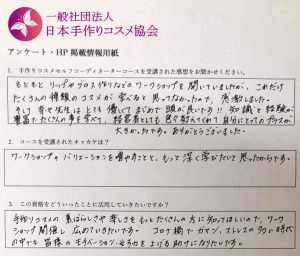 一般社団法人
日本手作りコスメ協会
アンケート・HP 掲載情報用紙
1. 手作りコスメセルフコーディネーターコースを受講された感想をお聞かせください。
もともと リップやグロス作りなどの ワークショップを 開いていましたが、これだけ
たくさんの 種類の コスメが 学べると 思ってなかったので、感動しました。
先生は とても 優しくて まじめで 頭が 良い方で、知識と 経験が
豊富で たくさんの事を 学べて、経営者としても 色々 教えてくれて 自分にとってのプラスが
大きかったです。ありがとうございました。
2. コースを受講されたキッカケは?
ワークショップの バリエーションを 増やすことと、もっと 深く 学びたいと 思ったからです。
3. この資格をどういったことに活用していきたいですか?
手作りコスメの 素晴らしさや 楽しさを もっと たくさんの 方に 知ってほしいので、ワーク
ショップ 開催し 広めていきたいです。 コロナ禍で ガマン、ストレスの多い 時代
の中でも 皆様の モチベーション 女子力を 上げる 助けになりたいです。